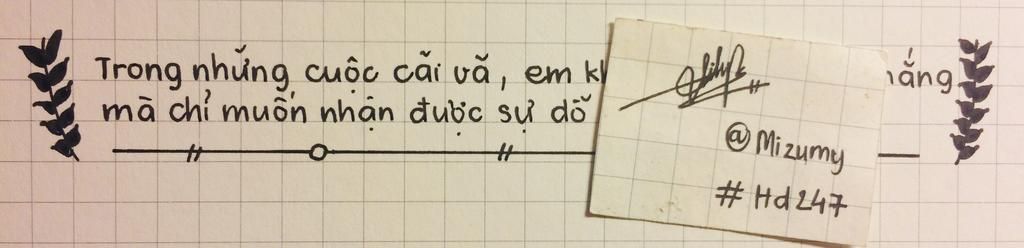 Trong những cuộc cãi vã, em
mà chỉ muốn nhận được sự dỗ
@Mizumy
#Hd247